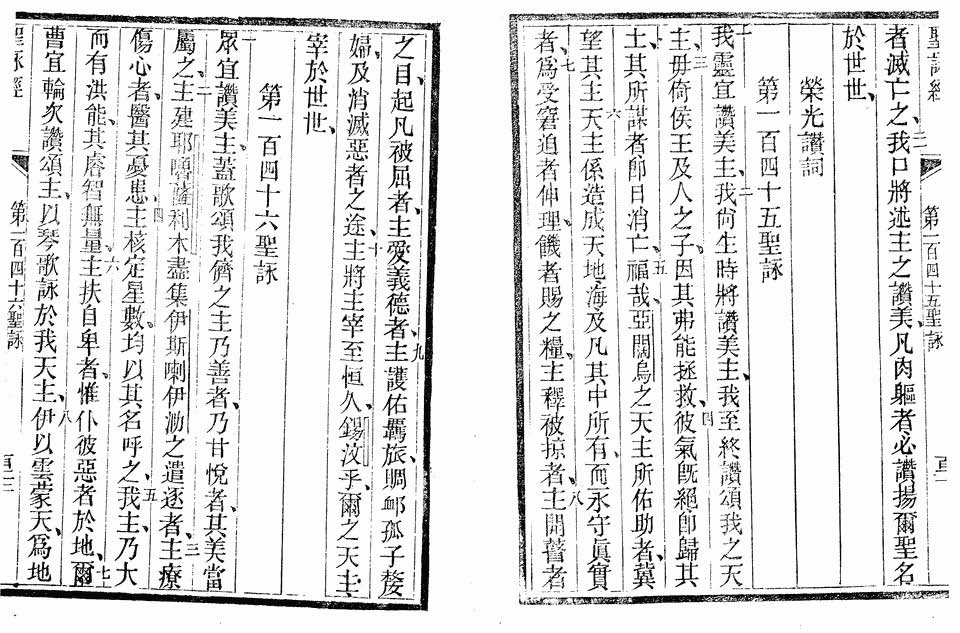 聖詠經
第一百四十五聖詠
者滅亡之、二一我口將述主之讚美、凡肉軀者必讚揚爾聖名
於世世、
榮光讚詞
第一百四十五聖詠
一我靈宜讚美主、二我尙生時將讚美主、我至終讚頌我之天
主、三毋倚侯王及人之子、因其弗能拯救、四彼氣旣絕卽歸其
土、其所謀者卽日消亡、五福哉、亞闊烏之天主所佑助者、冀
望其主天主、六係造成天地海及凡其中所有、而永守眞實
者、七爲受窘迫者伸理、饑者賜之糧、主釋被掠者、八主開瞽者
之目、起凡被屈者、主愛義德者、九主護佑羈旅、賙卹孤子嫠
婦、及消滅惡者之途、十主將主宰至恒久、錫汶乎、爾之天主
宰於世世、
第一百四十六聖詠
一眾宜讚美主、蓋歌頌我儕之主乃善者、乃甘悅者、其美當
屬之、二主建耶嚕薩利木、盡集伊斯喇伊泐之遣逐者、三主療
傷心者、醫其憂患、四主核定星數、均以其名呼之、五我主乃大
而有洪能、其睿智無量、六主扶自卑者、惟仆彼惡者於地、七爾
曹宜輪次讚頌主、以琴歌詠於我天主、八伊以雲蒙天、爲地
聖詠經
第一百四十六聖詠